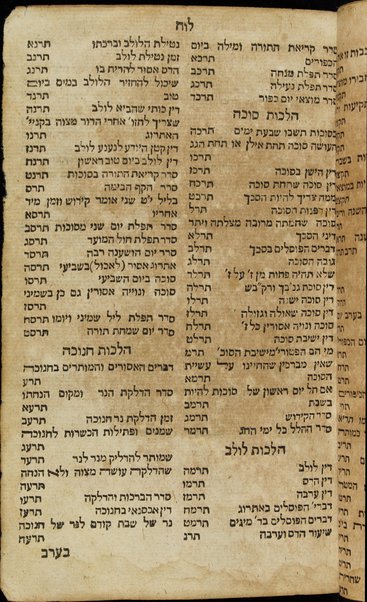 לוח
סדר קריאת התורה ומילה ביום
הכפורים תרכא
סדר תפלת מנחה תרכב
סדר תפלת נעילה תרכג
סדר מוצאי יום כפור תרכד
הלכות סוכה
בסוכות תשבו שבעת ימים תרכה
העושה סוכה תחת אילן או תחת הגג
תרכו
דין הישן בסוכה תרכז
דין סוכה שתחת סוכה תרכח
ממה צריך להיות הסכך תרכט
דין דפנות הסוכה תרל
סוכה שחמתה מרובה מצלתה ויתר
דיני הסכך תרלא
דברים הפוסלים בסכך תרלב
גובה הסוכה תרלג
שלא תהיה פחות מז' על ז' תרלד
דין סוכת גנב"ך ורקב"ש תרלה
דין סוכה ישנה תרלו
דין סוכה שאולה וגזולה תרלז
סוכה ונויה אסורין כל ז' תרלח
דין ישיבת סוכה תרלט
מי הם הפטורי' מישיבת הסוכ' תרמ
שאין מברכין שהחיינו על עשיית
הסוכה תרמא
אם חל יום ראשון של סוכות להיות
בשבת תרמב
סדר הקידוש תרמג
סדר ההלל כל ימי החג תרמד
הלכות לולב
דין לולב תרמה
דין הדס תרמו
דין ערבה תרמז
דברי' הפוסלים באתרוג תרמח
דברים הפוסלים בד' מינים תרמט
שיעור הדס וערבה תרנ
נטילת הלולב וברכתו תרנא
זמן נטילת לולב תרנב
הדס אסור להריח בו תרנג
שיכול להחזיר הלולב במים ביום
טוב תרנד
דין כותי שהביא לולב תרנה
שצריך לחזו' אחרי הדור מצוה בקניי'
האתרוג תרנו
דין קטן היודע לנענע לולב תרנז
דין לולב ביום טוב ראשון תרנח
סדר קריאת התורה בסוכות תרנט
סדר הקף הבימה תרס
בליל י"ט שני אומר קידוש וזמן מיד
אחריו תרסא
סדר תפלת יום שני מסוכות תרסב
סדר תפלת חול המועד תרסג
סדר יום הושענה רבה תרסד
אתרוג אסור (לאכול) בשביעי תרסה
סוכה ביום השביעי תרסו
סוכה ונוייה אסורין גם כן בשמיני
תרסז
סדר תפלת ליל שמיני ויומו תרסח
סדר יום שמחת תורה תרסט
הלכות חנוכה
דברים האסורים והמותרים בחנוכה
תרע
סדר הדלקת הנר ומקום הנחתו
תרעא
זמן הדלקת נר חנוכה תרעב
שמנים ופתילות הכשרות לחנוכה
תרעג
שמותר להדליק מנר לנר תרעד
שהדלקה עושה מצוה ולא הנחה
תרעה
סדר הברכות והדלקה תרעו
דין אכסנאי בחנוכה תרעז
נר של שבת קודם לנר של חנוכה
תרעח
בערב